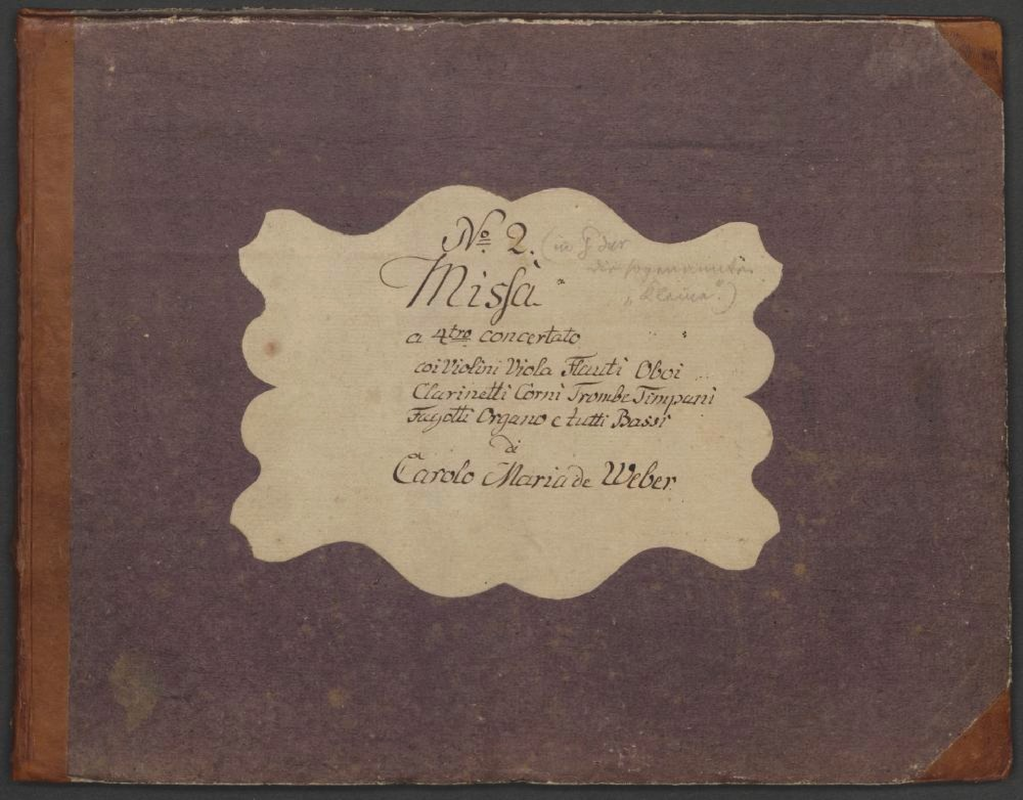 No 2. (in G dur
die sogenannte
„Kleine".)
Missa
a 4tro concertato
coi Violini Viola Flauti Oboi
Clarinetti Corni Trombe Timpani
Fagotti Organo e tutti Bassi
di
Carolo Maria de Weber